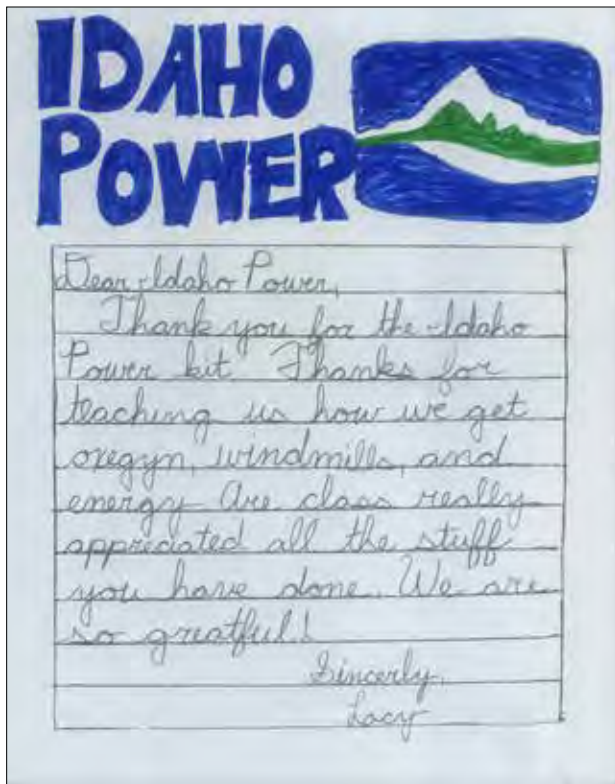 IDAHO
POWER
Dear Idaho Power,
Thank you for the Idaho
Power kit. Thanks for
teaching us how we get
oxegyn, windmills, and
energy Are class really
appreciated all the stuff
you have done. We are
so greatful!
Sincerly,
Lacy